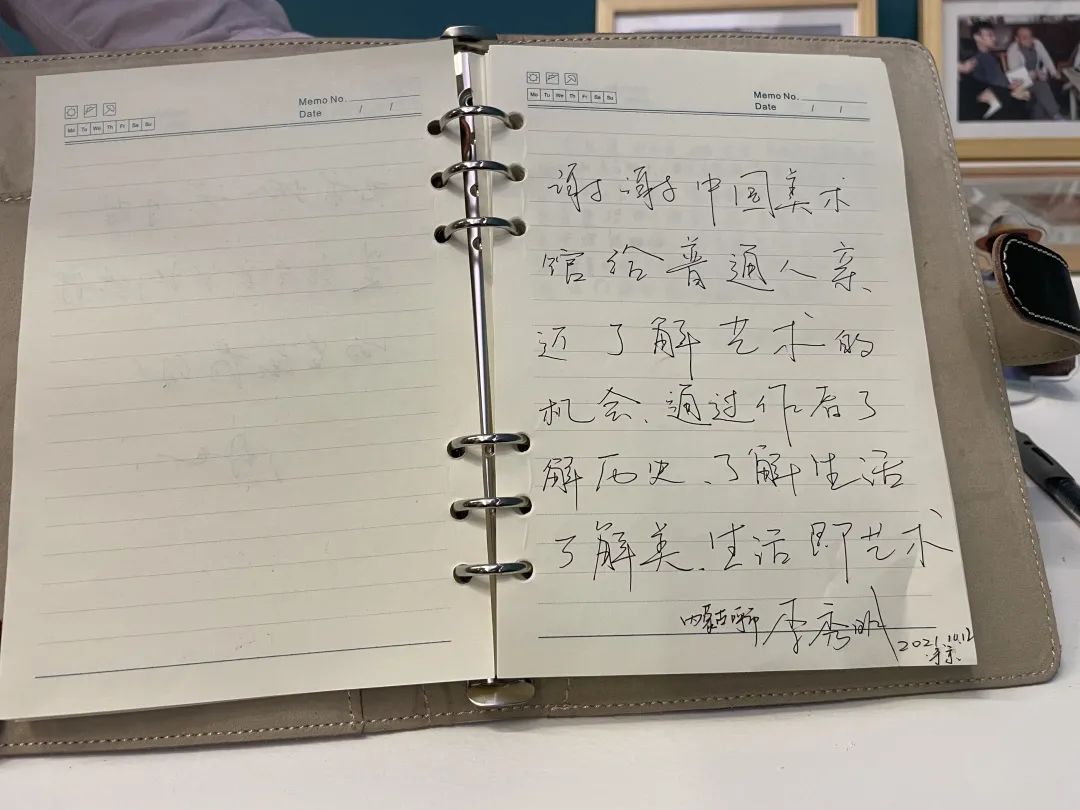 Memo No.
Date / /
Mo Tu We Th Fr Sa Su
Memo No.
Date / /
Mo Tu We Th Fr Sa Su
谢谢中国美术
馆给普通人亲
近了解艺术的
机会、通过作品了
解历史、了解生活
了解美、生活即艺术
内蒙古 李秀明
2021.10.12